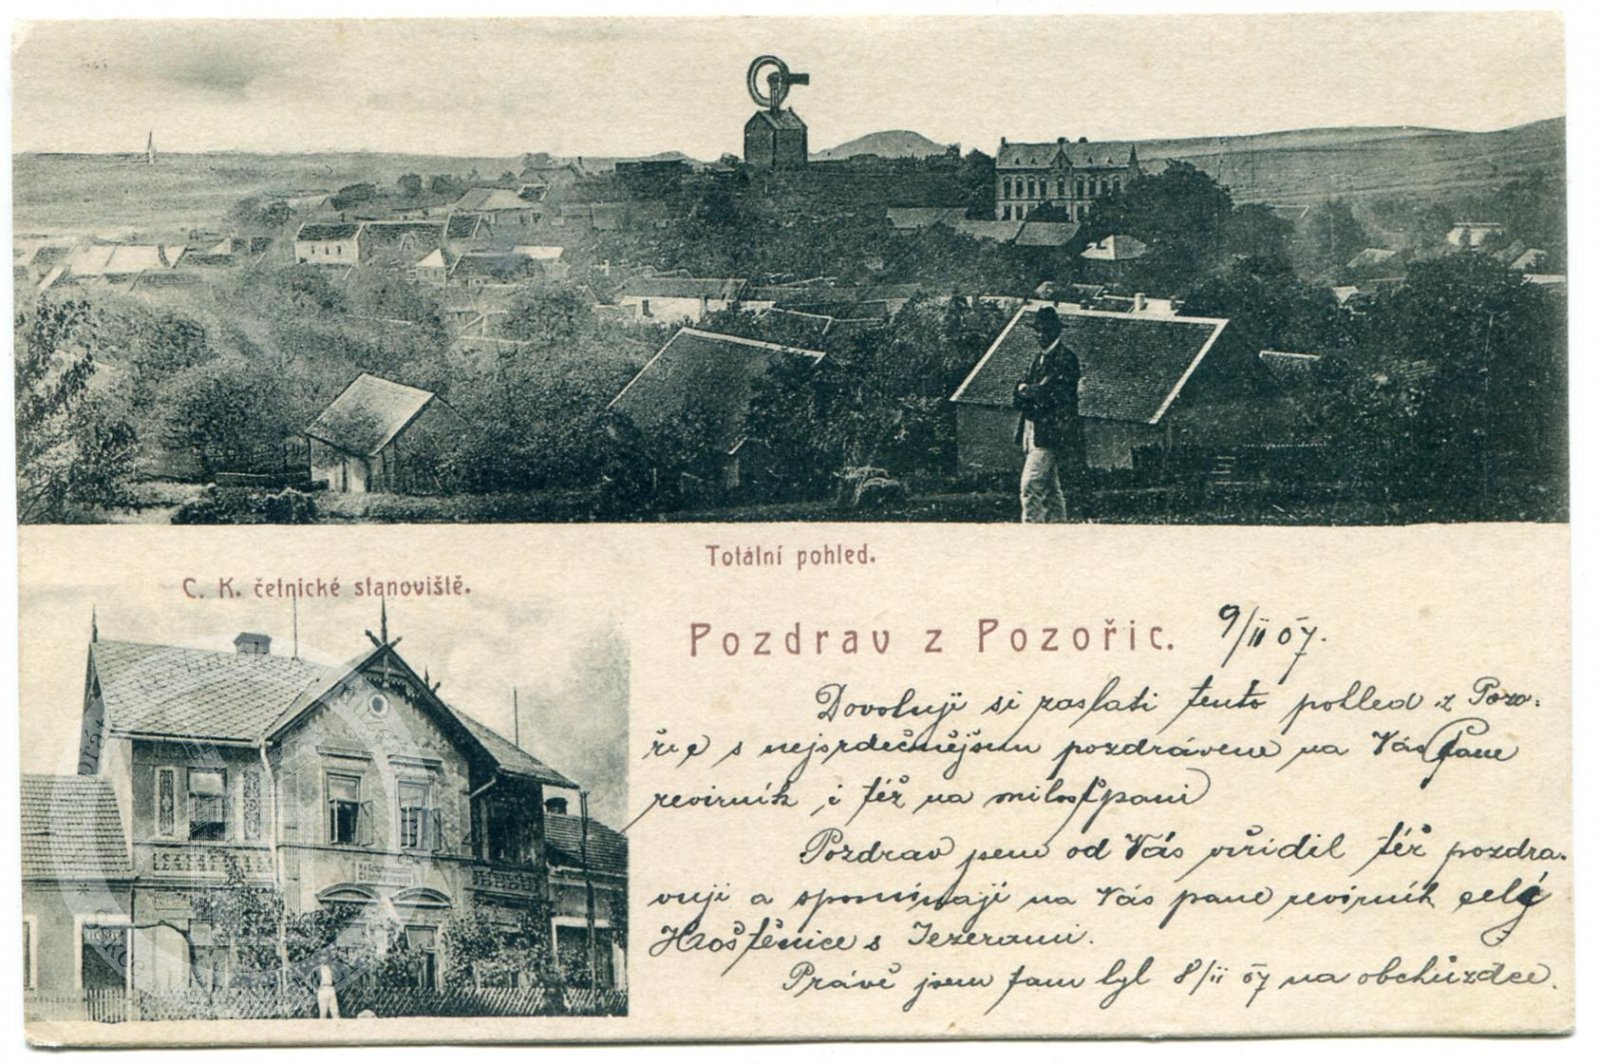 Totální pohled.
C. K. četnické stanoviště.
Pozdrav z Pozořic.
9/II 07.
Dovoluji si zaslati tento pohled z Pozo-
řic s nejsrdečnějším pozdravem na Vás Pane
revírník i též na milostpani
Pozdrav jsem od Vás vřídil též pozdra-
vuji a spomínají na Vás pane revírník celé
Hoštěnice s Jezerami.
Právě jsem tam byl 8/II 07 na obchůzdce.